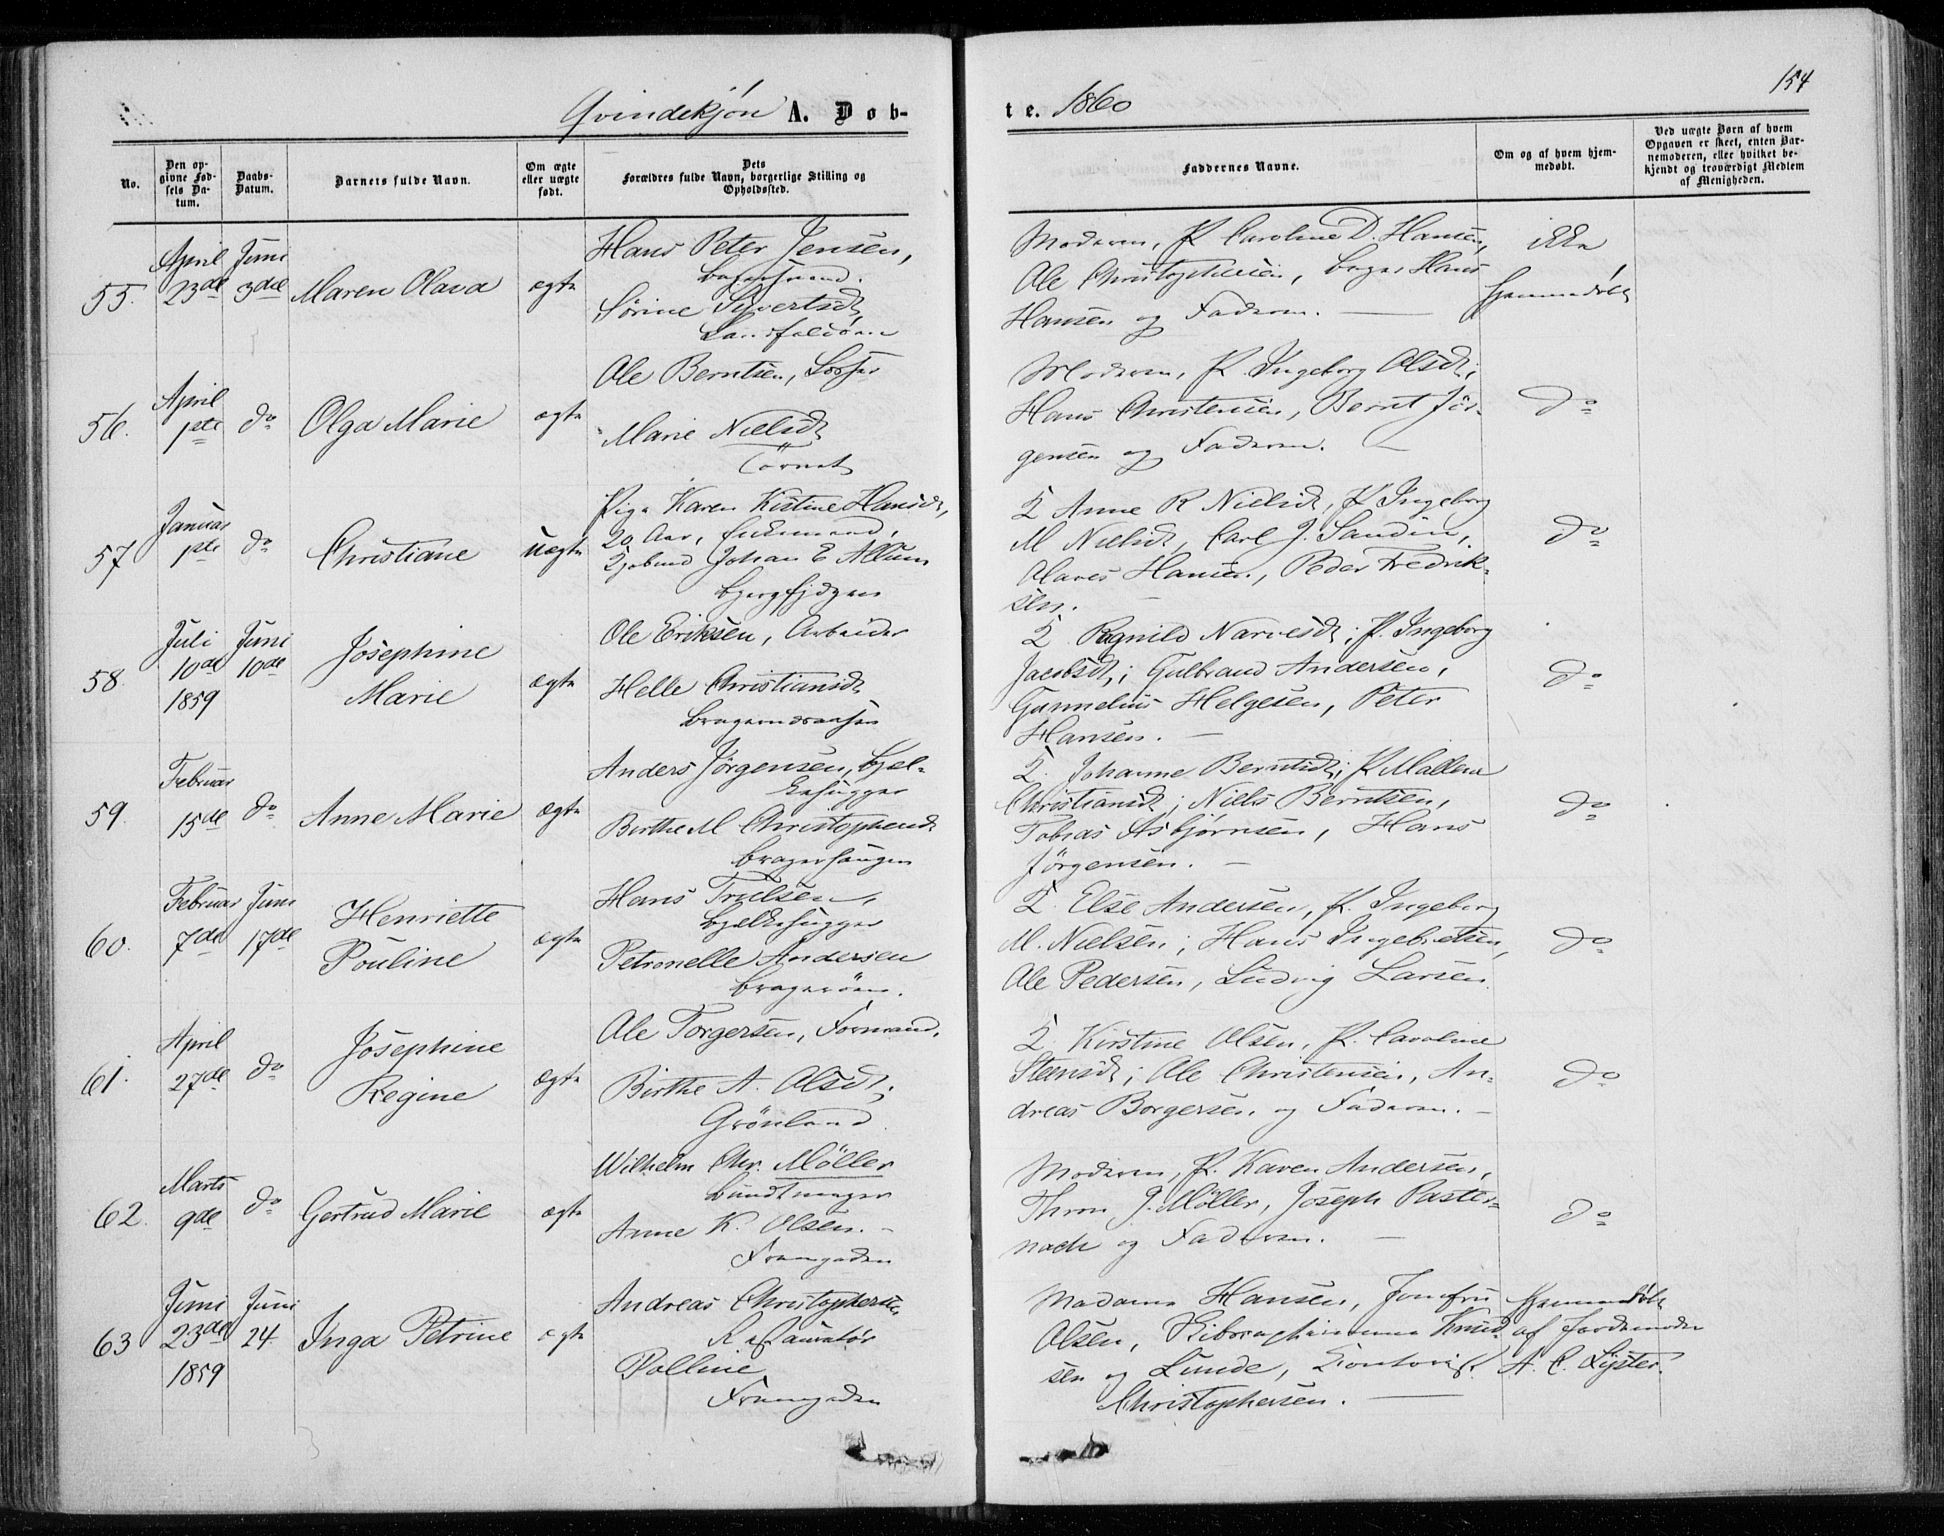 154
Qvindekjøn A. Døb-
te. 1860
No.
Den op-
givne Fød-
sels Da-
tum.
Daabs-
Datum.
Barnets fulde Navn.
Om ægte
eller uægte
født.
Dets
Forældres fulde Navn, borgerlige Stilling og
Opholdssted.
Faddernes Navne.
Om og af hvem hjem-
medøbt.
Ved uægte Børn af hvem
Opgaven er skeet, enten Bar-
nemoderen, eller hvilket be-
kjendt og troværdigt Medlem
af Menigheden.
55. April 23de Juni 3die Maren Olava ægte
Hans Peter Jensen,
Sørine Sivertsdt
Moderen, P. Caroline D. Hansen,
Ole Christophersen, Hans
Hansen og Faderen.
ikke
hjemmedøbt
56. April 1ste do Olga Marie ægte
Ole Berntsen,
Marie Nielsdt
Tørnet
Moderen, P. Ingeborg Olsdt,
Hans Christensen, Bernt Jør-
gensen og Faderen.
do
57 Januar 1ste do Christiane uægte
Pige Karen Kistine Hansdt,
20 Aar,
Johan E
K Anne R Nielsdt, P. Ingeborg
M Nielsdt, Carl J. Sandin,
Olaves Hansen, Peder Fredrik-
sen.
do
58. Juli 10de 1859 Juni 10de Josephine
Marie ægte
Ole Eriksen, Arbeider
Helle Christiansdt
Bragernesaasen
K Ragnild Narvesdt; P. Ingeborg
Jacobsdt; Gulbrand Andersen,
Gunnelius Helgesen, Peter
Hansen.
do
59. Februar 15de do Anne Marie ægte
Anders Jørgensen, Bjel-
kehugger
Birthe M Christophersdt
K. Johanne Berntsdt; P. Mallene
Christiansdt; Niels Berntsen,
Tobias Asbjørnsen, Hans
Jørgensen.
do
60. Februar 7de Juni 17de Henriette
Pouline ægte
Hans Trulsen,
Bjelkehugger
Petronelle Andersen
Bragerøen.
K. Else Andersen, P. Ingeborg
M. Nielsen; Hans Ingebretsen,
Ole Pedersen, Ludvig Larsen.
do
61. April 27de do Josephine
Regine ægte
Ole Torgersen, Formand,
Birthe A. Olsdt,
Grønland
K. Kirstine Olsen, P. Caroline
Steensdt; Ole Christensen, An-
dreas Borgersen og Faderen.
do
62. Marts 9de do Gertrud Marie ægte
Wilhelm Chr. Møller
Bundtmager
Anne K. Olsen.
Framgaden
Moderen, P. Karen Andersen,
Thron J. Møller, Joseph Paster-
nach og Faderen.
do
63 Juni 23de 1859 Juni 24. Inga Petrine ægte
Andreas Christophersen
Restauratør
Polline
Framgaden
Madame Hansen, Jomfru
Olsen, Knud-
sen og Lunde,
Christophersen.
Hjemmedøbt
af Jordemoder
A. C. Lyster.